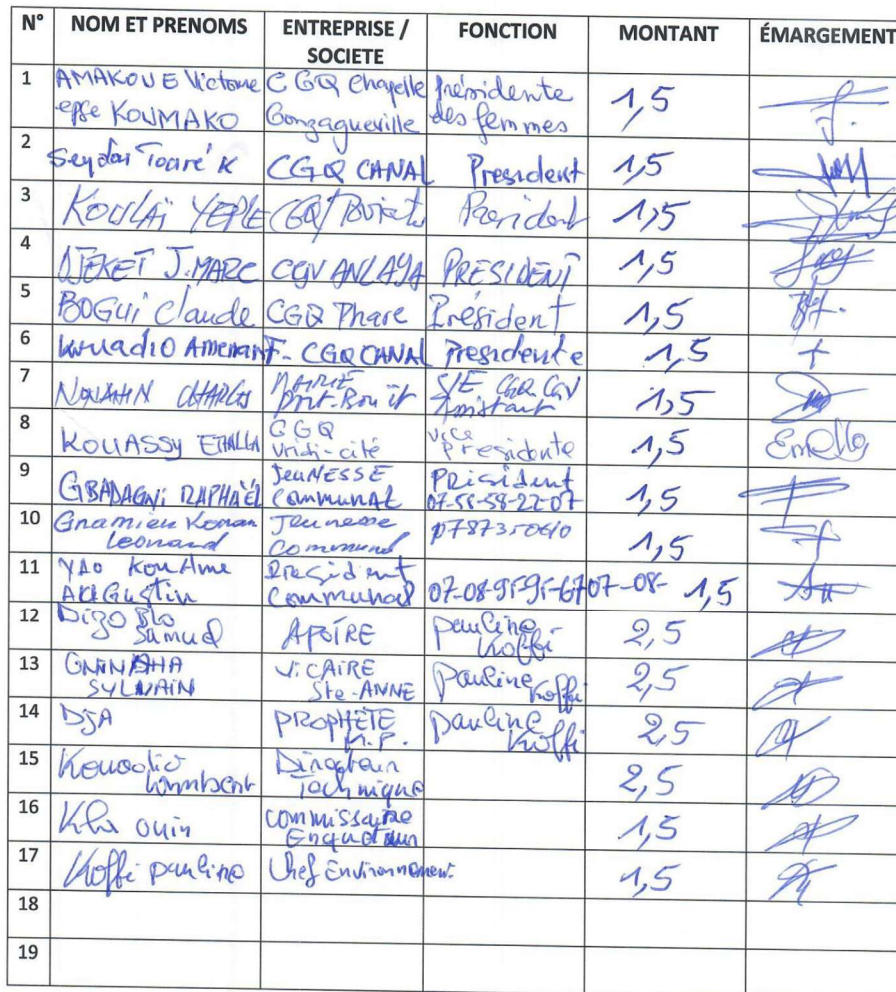 N° NOM ET PRENOMS ENTREPRISE / SOCIETE FONCTION MONTANT ÉMARGEMENT
1 AMAKOUE Victoire epse KOUMAKO CGQ Chapelle Gonzagueville Présidente des femmes 1,5
2 Seydou Touré K CGQ CANAL President 1,5
3 KOULAÏ YEPLE CGQ Président 1,5
4 DJEKET J.MARC CGV ANLAYA PRESIDENT 1,5
5 BOGUI Claude CGQ Phare Président 1,5
6 Kouadio Amenan F. CGQ CANAL Presidente 1,5
7 CHARLES MAIRIE Port-Bouët S/E CGQ CGV Assistant 1,5
8 KOUASSY CGQ Vridi-cité Vice Presidente 1,5
9 GBADAGNi RAPHAËL JeuNESSE CommuNAL PRésident 07-58-58-22-07 1,5
10 Gnamien Konan Leonard Jeunesse Communal 1,5
11 YAO KouAme AuGustin President Communal 07-08-95-95-67 07-08- 1,5
12 Dizo Blo Samuel APÔTRE pauline Koffi 2,5
13 SYLVAIN ViCAiRE Ste-ANNE Pauline Koffi 2,5
14 DJA PROPHÈTE pauline Koffi 2,5
15 Kouadio Directeur Technique 2,5
16 Kla ouin Commissaire Enqueteur 1,5
17 Koffi pauline Chef Environnement 1,5
18
19